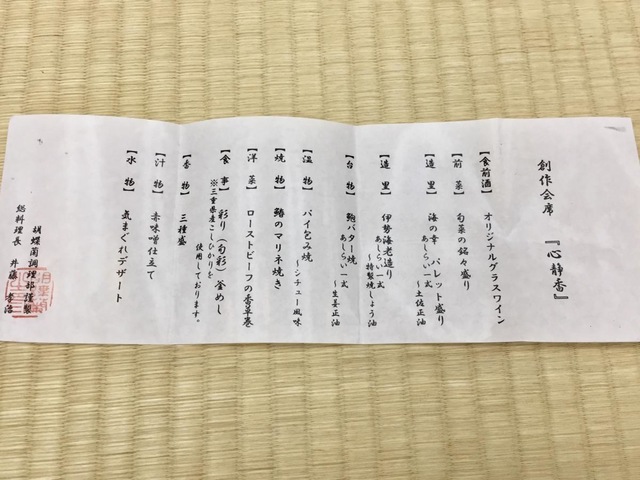 創作会席 『心静香』
【食前酒】 オリジナルグラスワイン
【前菜】 旬菜の銘々盛り
【造里】 海の幸 パレット盛り
あしらい一式 ～土佐正油
【造里】 伊勢海老造り
あしらい一式 ～特製焼しょう油
【台物】 鮑バター焼
あしらい一式 ～生姜正油
【温物】 パイ包み焼
～シチュー風味
【焼物】 鰆のマリネ焼き
【洋菜】 ローストビーフの香草巻
【食事】 彩り（旬彩）釜めし
※三重県産こしひかりを
使用しております。
【香物】 三種盛
【汁物】 赤味噌仕立て
【水物】 気まぐれデザート
胡蝶蘭調理部謹製
総料理長 井藤 孝治